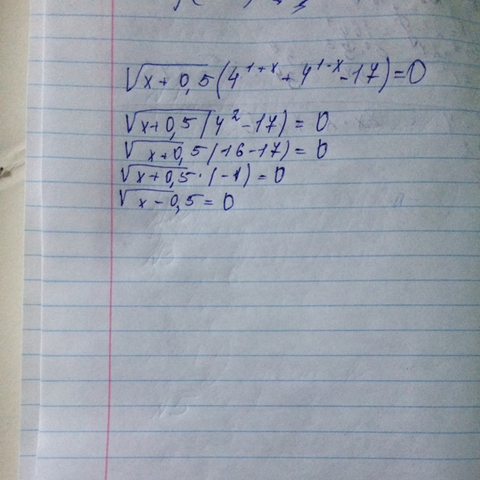 √x+0,5(4^1+x+4^1-x-17)=0
√x+0,5(4^2-17)=0
√x+0,5(16-17)=0
√x+0,5·(-1)=0
√x-0,5=0